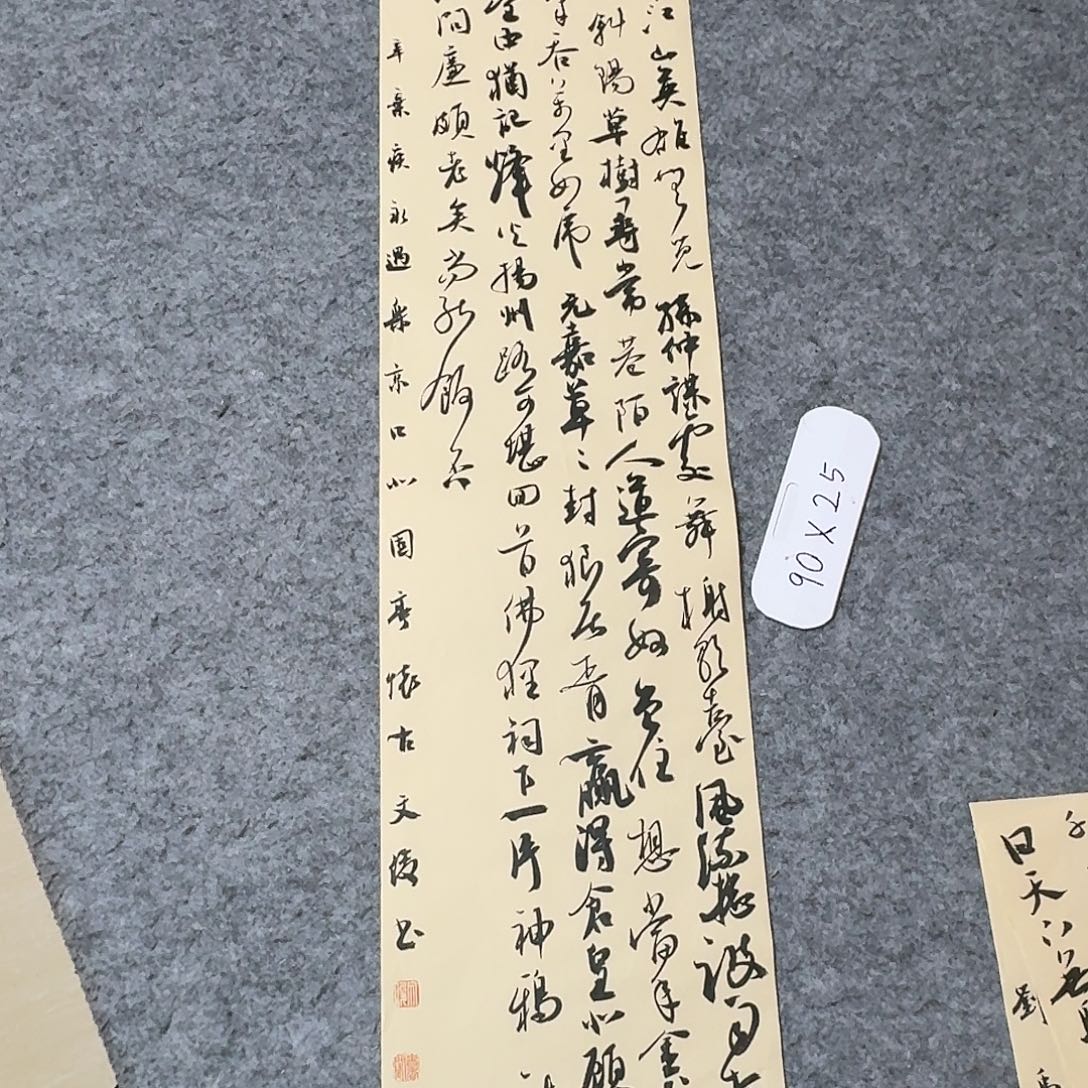 江山英雄无覓孫仲謀處舞榭歌臺風流總被雨
斜陽草樹尋常巷陌人道寄奴曾住想當年金
氣吞万里如虎元嘉草々封狼居胥贏得倉皇北顧
望中猶記烽火揚州路可堪回首佛狸祠下一片神鴉
問廉頗老矣尚能飯否
辛棄疾永遇樂京口北固亭懷古文书
90X25
天下
劉